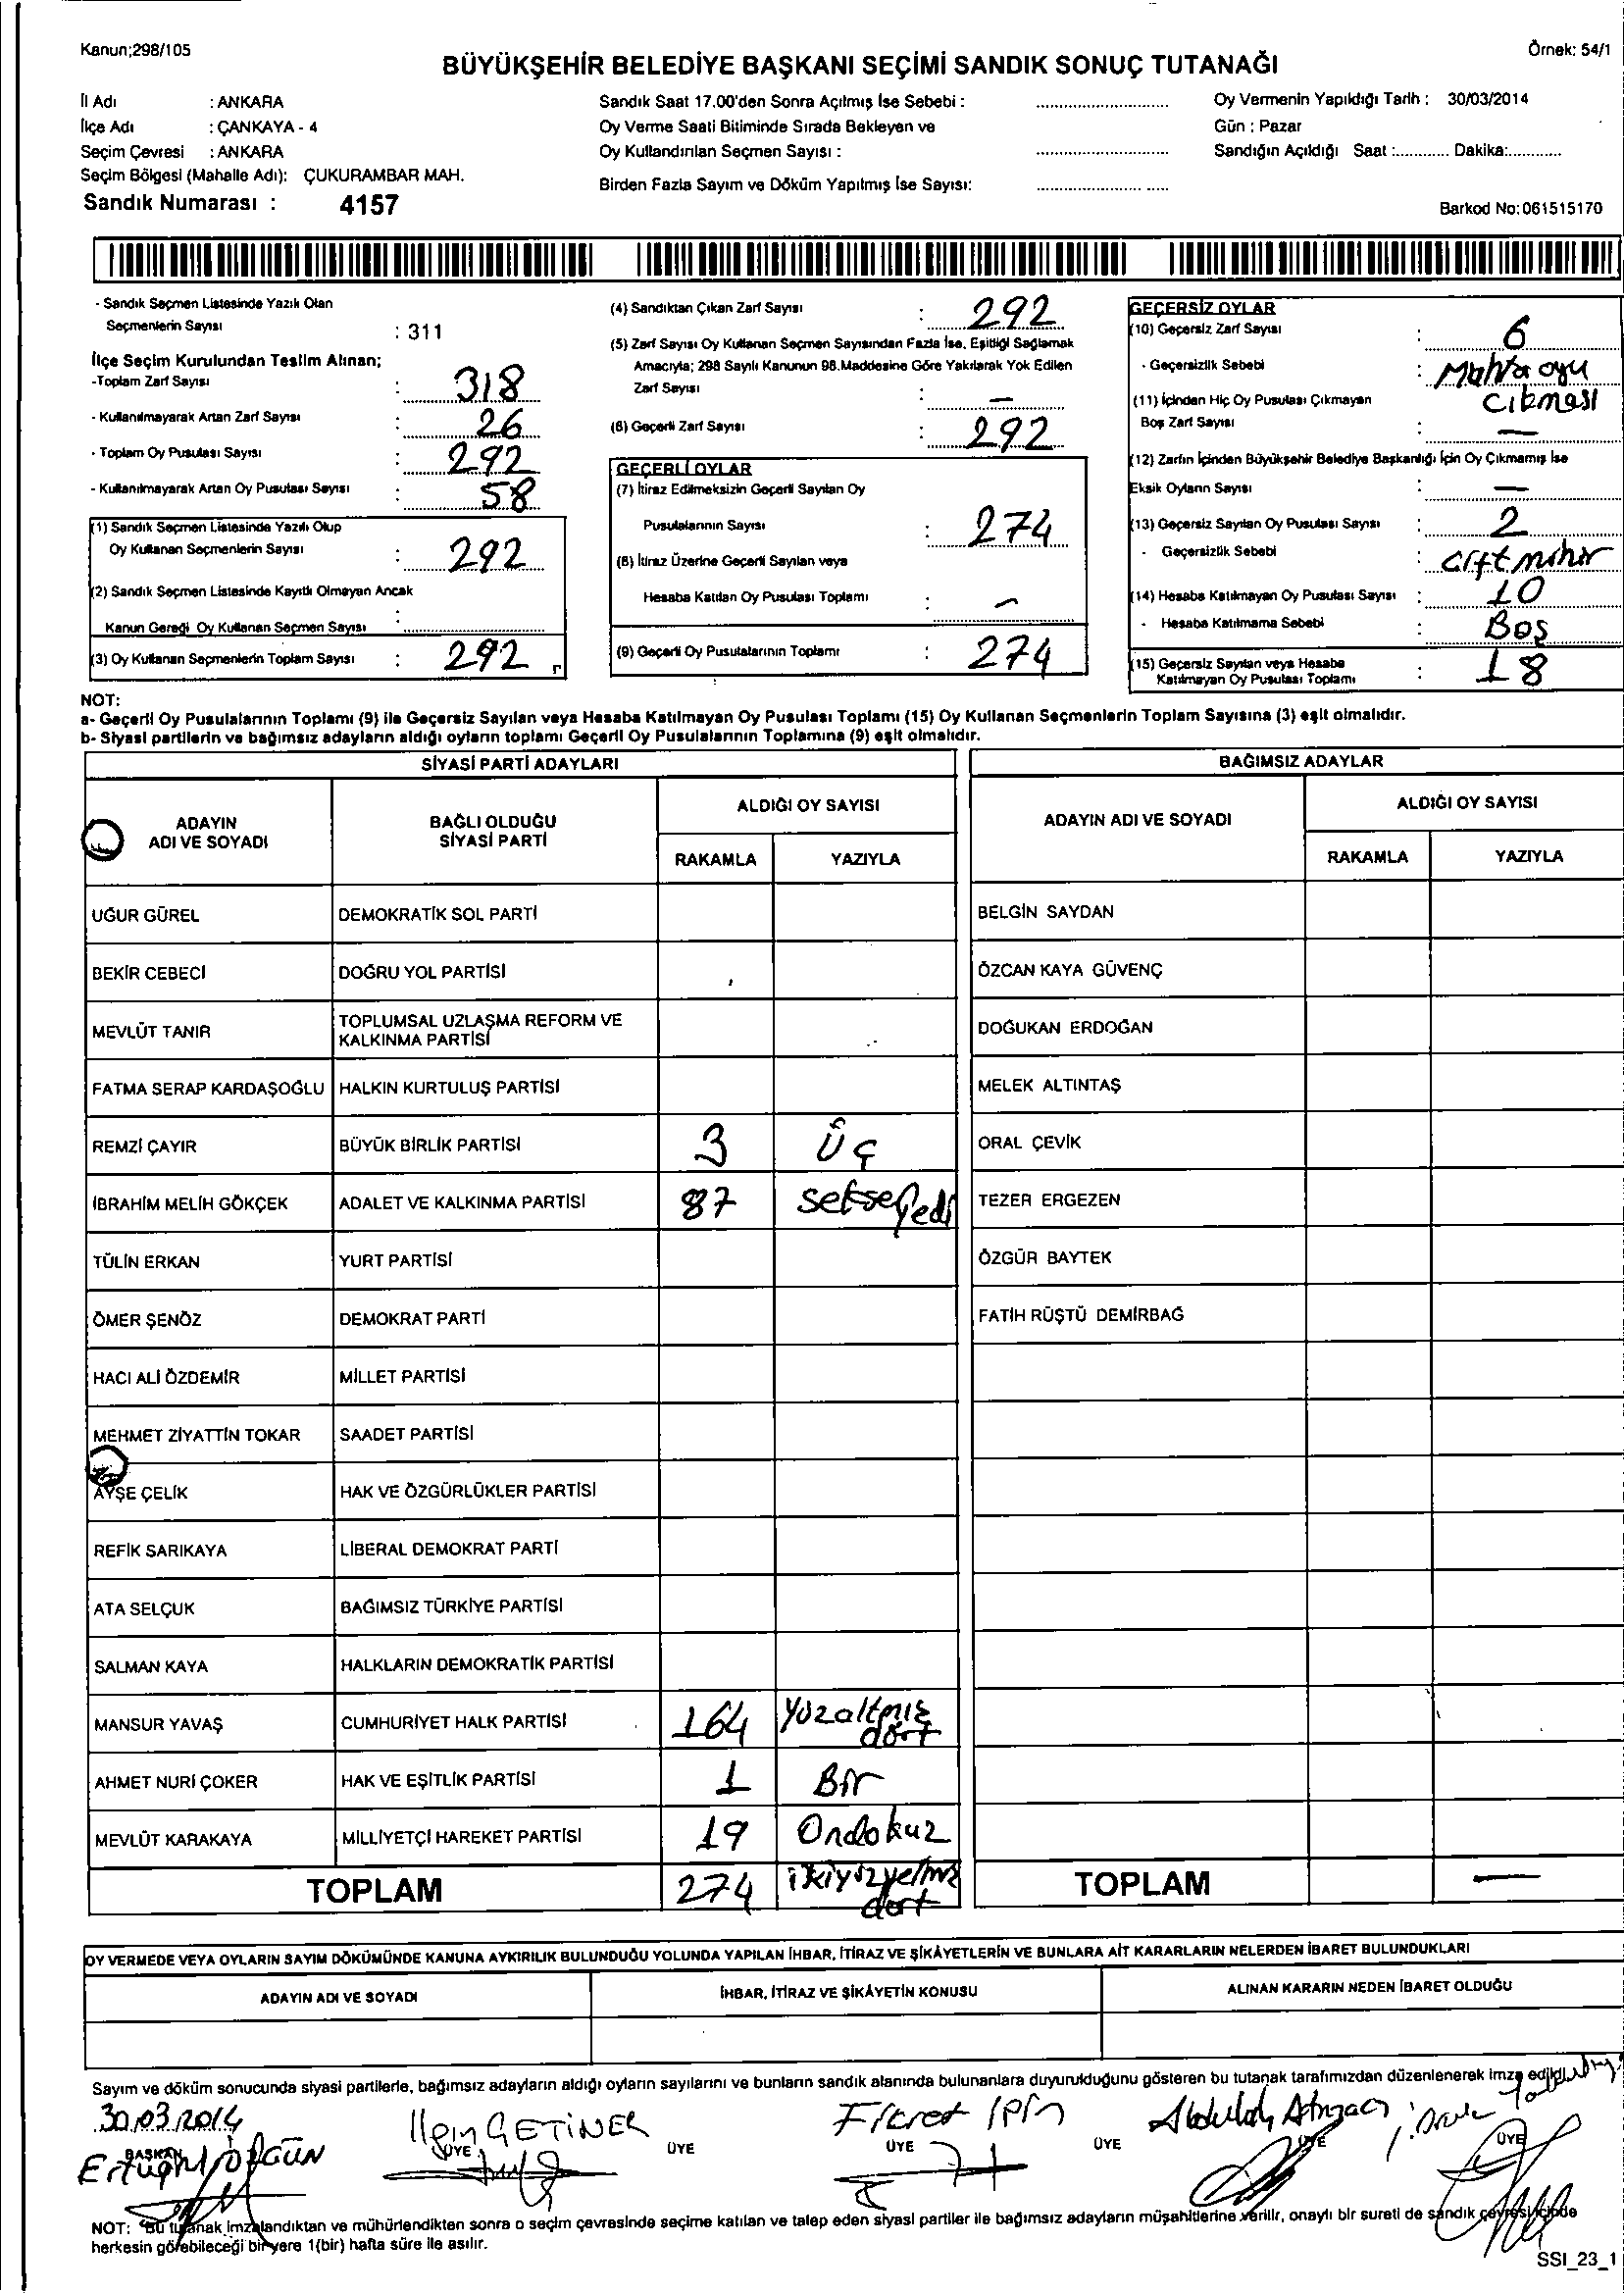 Kanun;298/105
Örnek: 54/1
BÜYÜKŞEHİR BELEDİYE BAŞKANI SEÇİMİ SANDIK SONUÇ TUTANAĞI
İl Adı : ANKARA
İlçe Adı : ÇANKAYA - 4
Seçim Çevresi : ANKARA
Seçim Bölgesi (Mahalle Adı): ÇUKURAMBAR MAH.
Sandık Numarası : 4157
Sandık Saat 17.00'den Sonra Açılmış İse Sebebi :
Oy Verme Saati Bitiminde Sırada Bekleyen ve
Oy Kullandırılan Seçmen Sayısı :
Birden Fazla Sayım ve Döküm Yapılmış İse Sayısı:
Oy Vermenin Yapıldığı Tarih : 30/03/2014
Gün : Pazar
Sandığın Açıldığı Saat :............ Dakika:............
Barkod No:061515170
- Sandık Seçmen Listesinde Yazılı Olan
Seçmenlerin Sayısı : 311
İlçe Seçim Kurulundan Teslim Alınan;
-Toplam Zarf Sayısı : 318
- Kullanılmayarak Artan Zarf Sayısı : 26
- Toplam Oy Pusulası Sayısı : 292
- Kullanılmayarak Artan Oy Pusulası Sayısı : 58
(1) Sandık Seçmen Listesinde Yazılı Olup
Oy Kullanan Seçmenlerin Sayısı : 292
(2) Sandık Seçmen Listesinde Kayıtlı Olmayan Ancak
Kanun Gereği Oy Kullanan Seçmen Sayısı :
(3) Oy Kullanan Seçmenlerin Toplam Sayısı : 292
(4) Sandıktan Çıkan Zarf Sayısı : 292
(5) Zarf Sayısı Oy Kullanan Seçmen Sayısından Fazla İse, Eşitliği Sağlamak
Amacıyla; 298 Sayılı Kanunun 98.Maddesine Göre Yakılarak Yok Edilen
Zarf Sayısı : —
(6) Geçerli Zarf Sayısı : 292
GEÇERLİ OYLAR
(7) İtiraz Edilmeksizin Geçerli Sayılan Oy
Pusulalarının Sayısı : 274
(8) İtiraz Üzerine Geçerli Sayılan veya
Hesaba Katılan Oy Pusulası Toplamı : —
(9) Geçerli Oy Pusulalarının Toplamı : 274
GEÇERSİZ OYLAR
(10) Geçersiz Zarf Sayısı : 6
- Geçersizlik Sebebi : Muhtar oyu
Çıkması
(11) İçinden Hiç Oy Pusulası Çıkmayan
Boş Zarf Sayısı : —
(12) Zarfın İçinden Büyükşehir Belediye Başkanlığı İçin Oy Çıkmamış İse
Eksik Oyların Sayısı : —
(13) Geçersiz Sayılan Oy Pusulası Sayısı : 2
- Geçersizlik Sebebi : Çift mühür
(14) Hesaba Katılmayan Oy Pusulası Sayısı : 10
- Hesaba Katılmama Sebebi : Boş
(15) Geçersiz Sayılan veya Hesaba
Katılmayan Oy Pusulası Toplamı : 18
NOT:
a- Geçerli Oy Pusulalarının Toplamı (9) ile Geçersiz Sayılan veya Hesaba Katılmayan Oy Pusulası Toplamı (15) Oy Kullanan Seçmenlerin Toplam Sayısına (3) eşit olmalıdır.
b- Siyasi partilerin ve bağımsız adayların aldığı oyların toplamı Geçerli Oy Pusulalarının Toplamına (9) eşit olmalıdır.
SİYASİ PARTİ ADAYLARI
ADAYIN ADI VE SOYADI
BAĞLI OLDUĞU SİYASİ PARTİ
ALDIĞI OY SAYISI
RAKAMLA YAZIYLA
UĞUR GÜREL DEMOKRATİK SOL PARTİ
BEKİR CEBECİ DOĞRU YOL PARTİSİ
MEVLÜT TANIR TOPLUMSAL UZLAŞMA REFORM VE
KALKINMA PARTİSİ
FATMA SERAP KARDAŞOĞLU HALKIN KURTULUŞ PARTİSİ
REMZİ ÇAYIR BÜYÜK BİRLİK PARTİSİ 3 Üç
İBRAHİM MELİH GÖKÇEK ADALET VE KALKINMA PARTİSİ 87 seksenyedi
TÜLİN ERKAN YURT PARTİSİ
ÖMER ŞENÖZ DEMOKRAT PARTİ
HACI ALİ ÖZDEMİR MİLLET PARTİSİ
MEHMET ZİYATTİN TOKAR SAADET PARTİSİ
AYŞE ÇELİK HAK VE ÖZGÜRLÜKLER PARTİSİ
REFİK SARIKAYA LİBERAL DEMOKRAT PARTİ
ATA SELÇUK BAĞIMSIZ TÜRKİYE PARTİSİ
SALMAN KAYA HALKLARIN DEMOKRATİK PARTİSİ
MANSUR YAVAŞ CUMHURİYET HALK PARTİSİ 164 Yüzaltmış
dört
AHMET NURİ ÇOKER HAK VE EŞİTLİK PARTİSİ 1 Bir
MEVLÜT KARAKAYA MİLLİYETÇİ HAREKET PARTİSİ 19 Ondokuz
TOPLAM 274 ikiyüzyetmiş
dört
BAĞIMSIZ ADAYLAR
ADAYIN ADI VE SOYADI
ALDIĞI OY SAYISI
RAKAMLA YAZIYLA
BELGİN SAYDAN
ÖZCAN KAYA GÜVENÇ
DOĞUKAN ERDOĞAN
MELEK ALTINTAŞ
ORAL ÇEVİK
TEZER ERGEZEN
ÖZGÜR BAYTEK
FATİH RÜŞTÜ DEMİRBAĞ
TOPLAM —
OY VERMEDE VEYA OYLARIN SAYIM DÖKÜMÜNDE KANUNA AYKIRILIK BULUNDUĞU YOLUNDA YAPILAN İHBAR, İTİRAZ VE ŞİKÂYETLERİN VE BUNLARA AİT KARARLARIN NELERDEN İBARET BULUNDUKLARI
ADAYIN ADI VE SOYADI
İHBAR, İTİRAZ VE ŞİKÂYETİN KONUSU
ALINAN KARARIN NEDEN İBARET OLDUĞU
Sayım ve döküm sonucunda siyasi partilerle, bağımsız adayların aldığı oyların sayılarını ve bunların sandık alanında bulunanlara duyurulduğunu gösteren bu tutanak tarafımızdan düzenlenerek imza edildi.
30.03.2014
BAŞKAN ÜYE ÜYE ÜYE ÜYE ÜYE ÜYE
NOT: Bu tutanak imzalandıktan ve mühürlendikten sonra o seçim çevresinde seçime katılan ve talep eden siyasi partiler ile bağımsız adayların müşahitlerine verilir, onaylı bir sureti de sandık çevresi içinde
herkesin görebileceği bir yere 1(bir) hafta süre ile asılır.
SSI_23_1